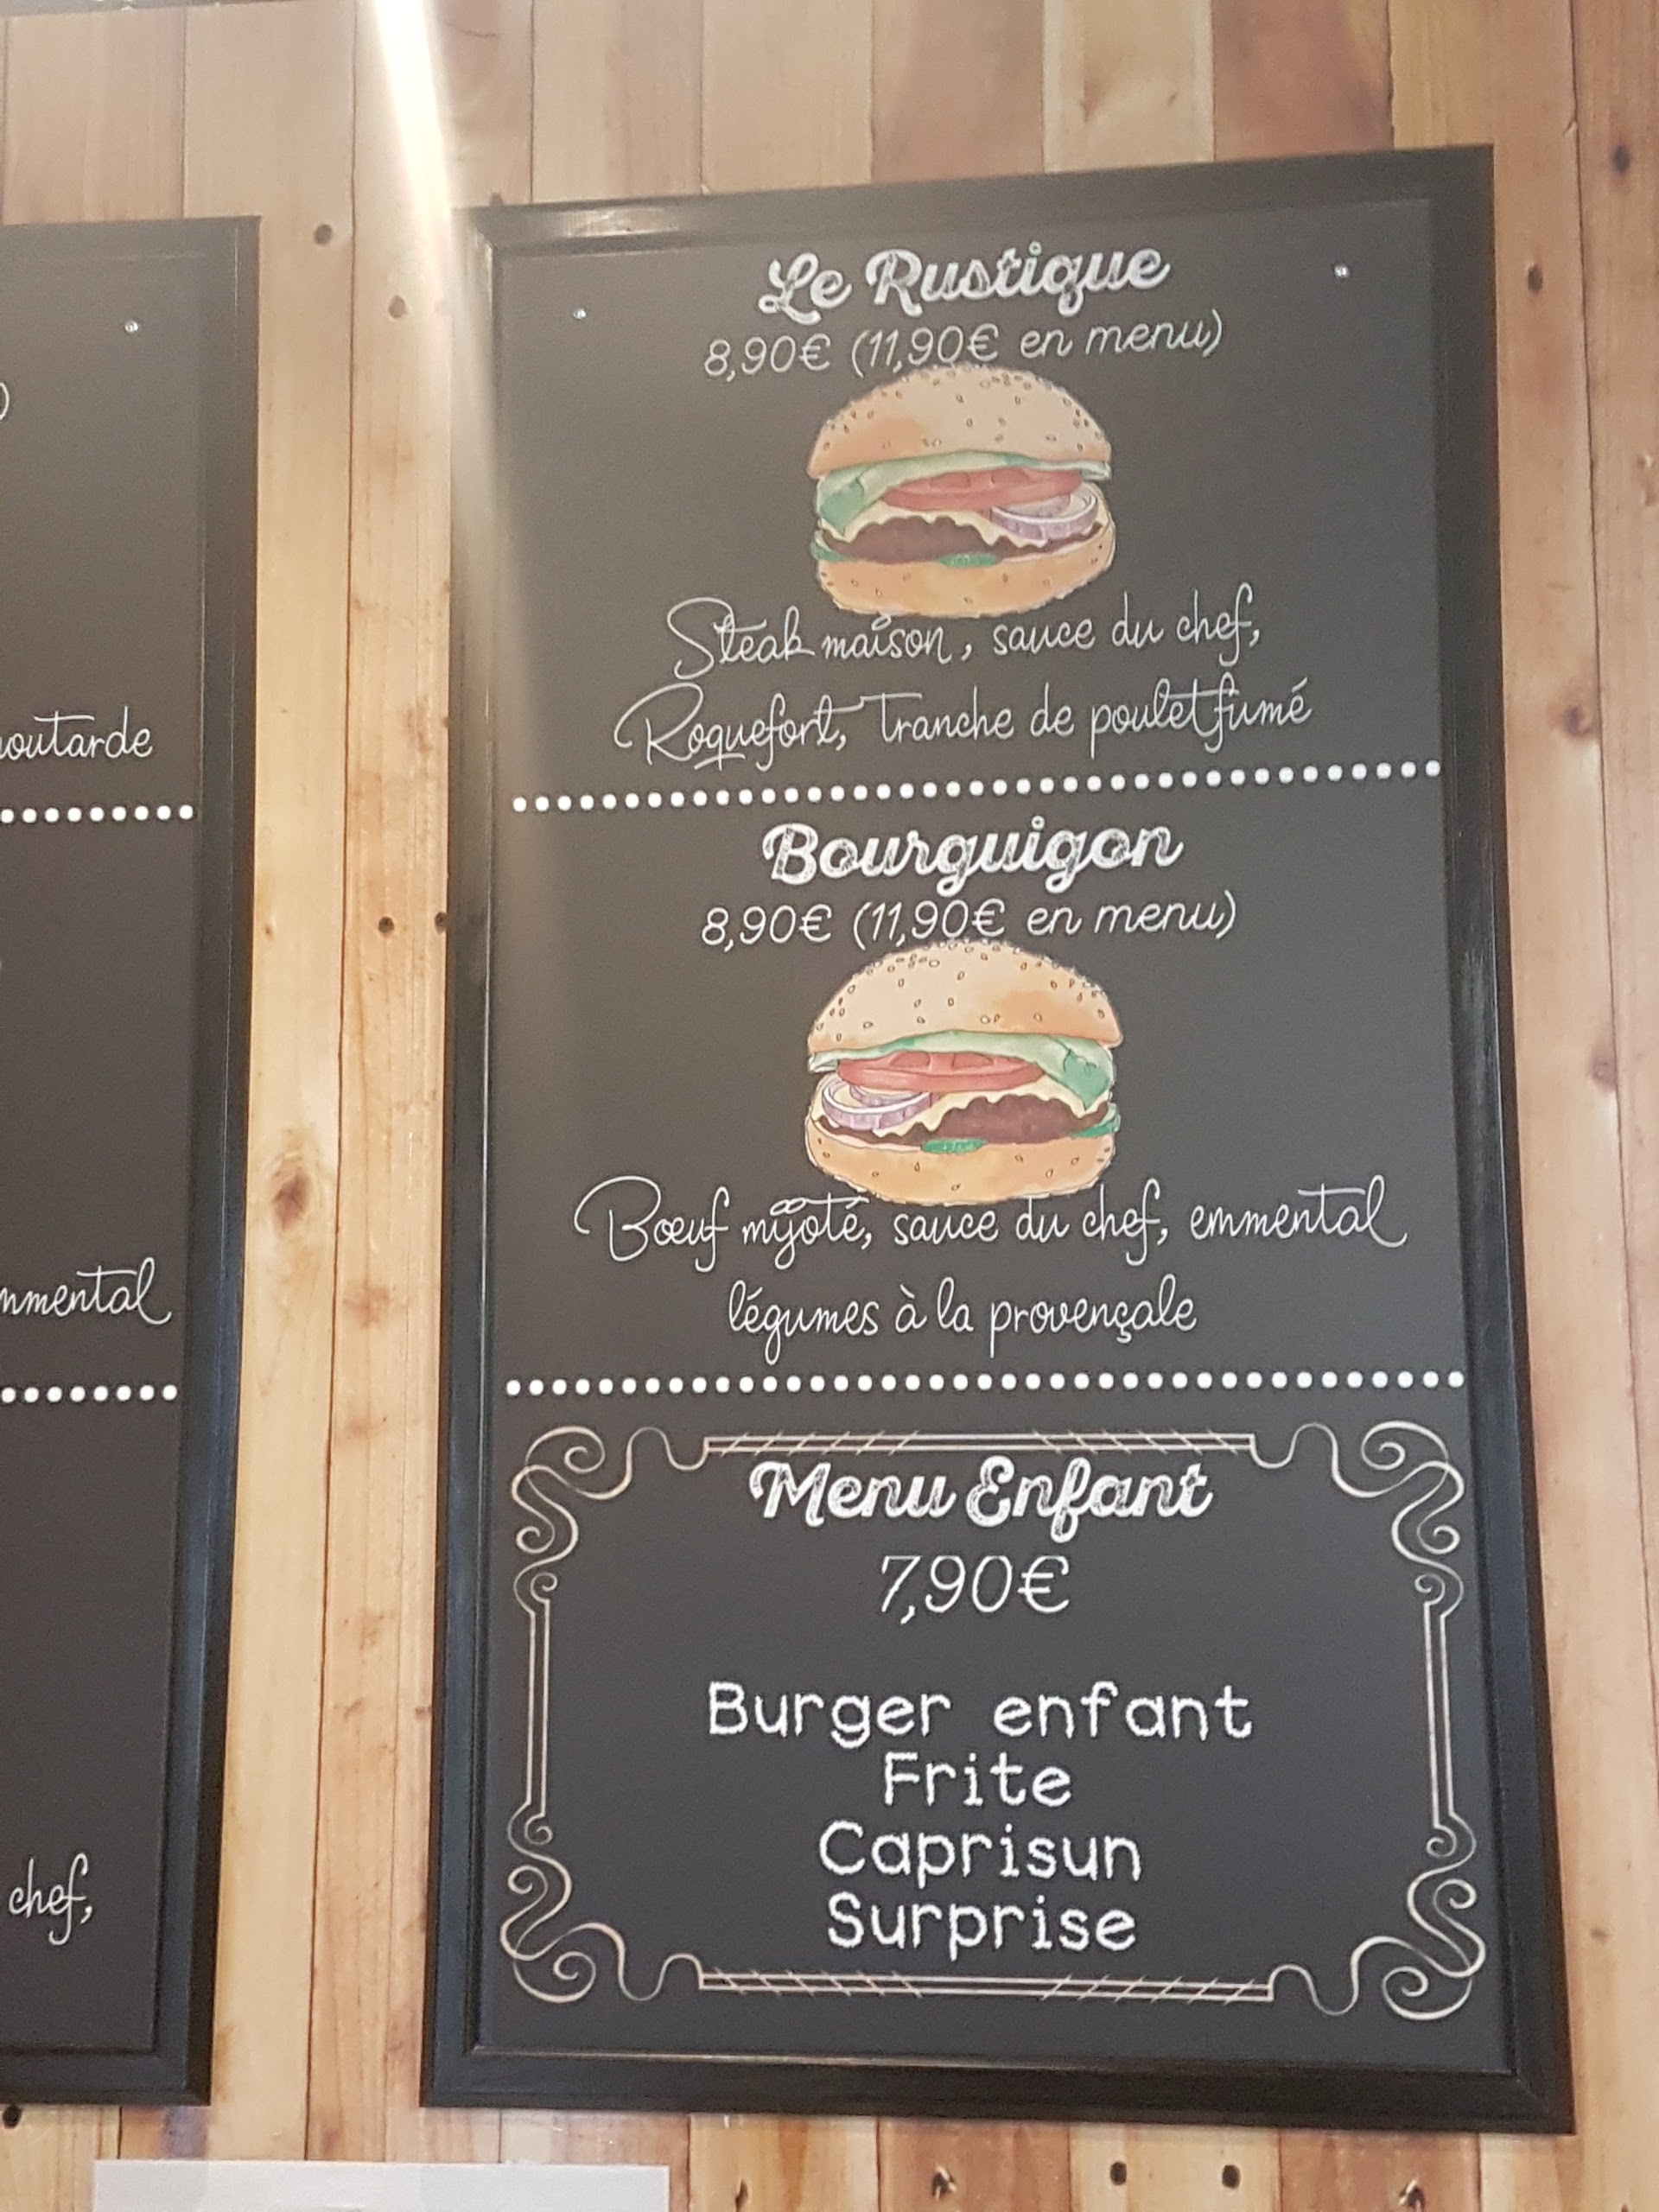 outarde
mmental
chef,
Le Rustique
8,90€ (11,90€ en menu)
Steak maison, sauce du chef,
Roquefort, Tranche de poulet fumé
Bourguigon
8,90€ (11,90€ en menu)
Bœuf mijoté, sauce du chef, emmental
légumes à la provençale
Menu Enfant
7,90€
Burger enfant
Frite
Caprisun
Surprise